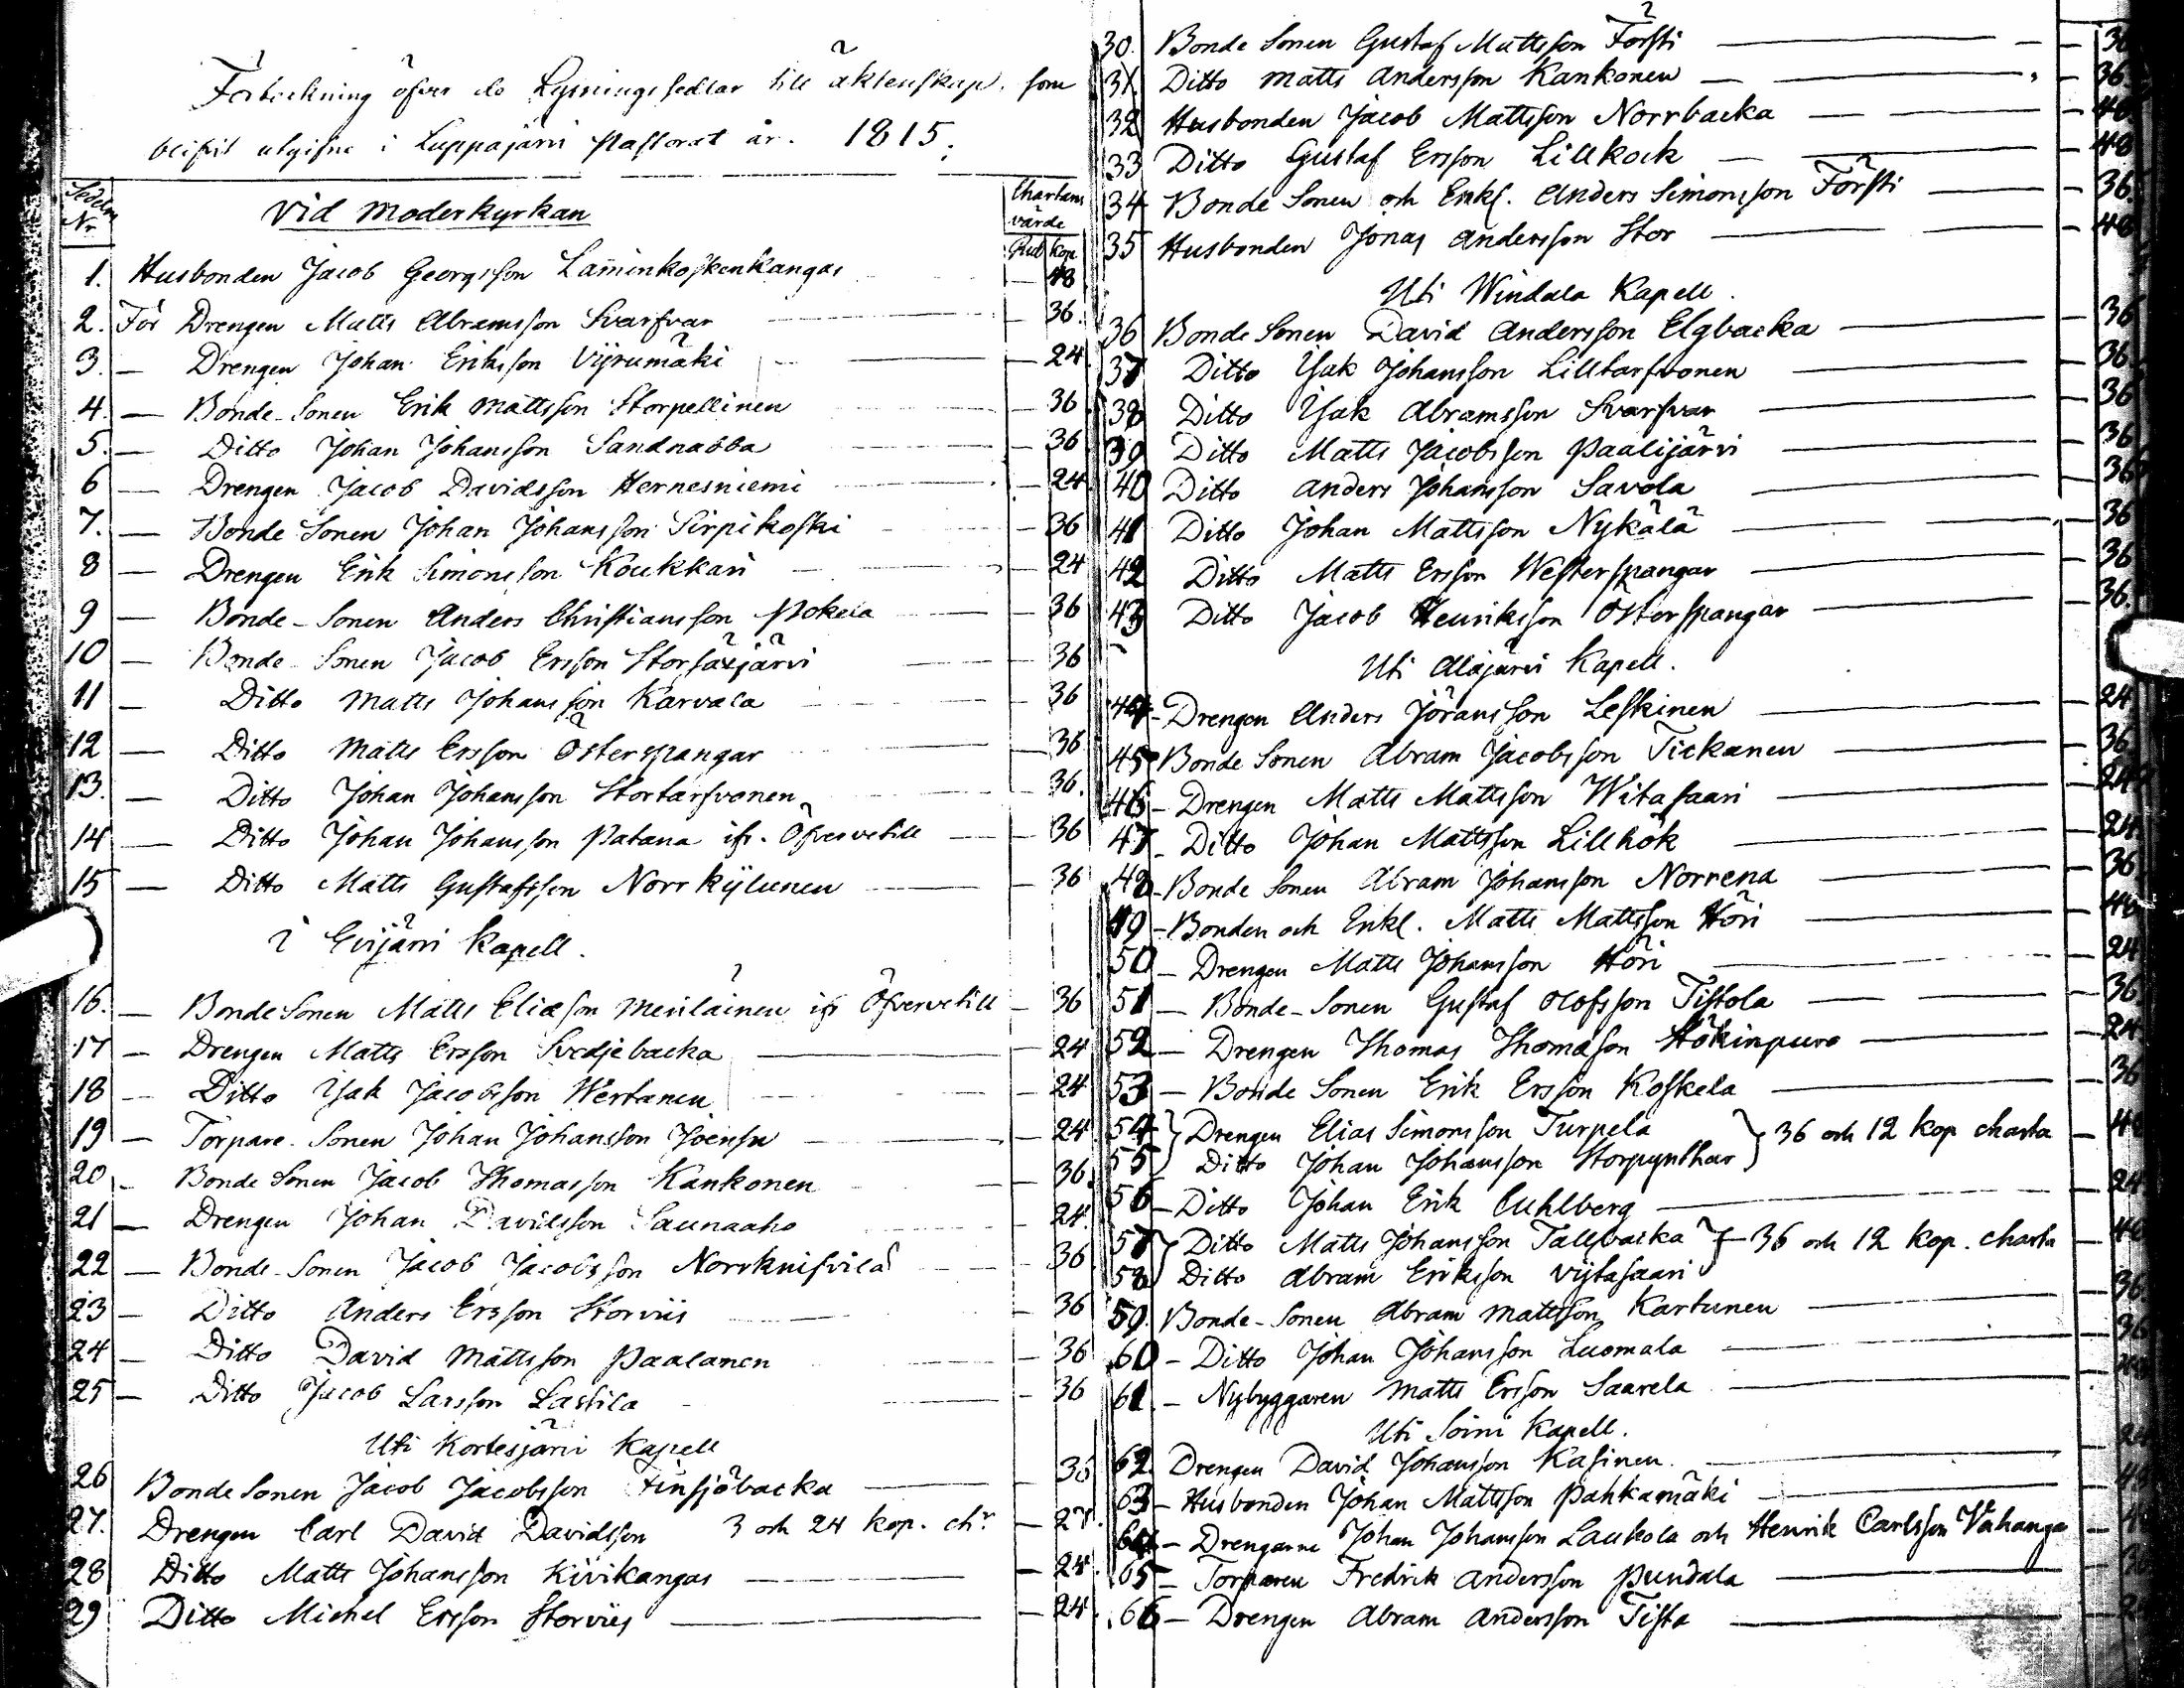 Förteckning öfver de Lysningssedlar till äktenskap, som
blifvit utgifne i Lappajärvi Pastorat år. 1815.
Sedeln Nr
Vid Moderkyrkan
Chartans värde
Rub kop
1. Husbonden Jacob Georgsson Laminkoskenkangas — 48
2. För Drengen Matts Abramsson Svarfvar — 36.
3. — Drengen Johan Eriksson Vijrumäki — 24
4. — Bonde-Sonen Erik Mattsson Storpellinen — 36
5. — Ditto Johan Johansson Sandnabba — 36
6 — Drengen Jacob Davidsson Hernesniemi — 24
7. — Bonde Sonen Johan Johansson Sirpikoski — 36
8 — Drengen Erik Simonsson Koukkari — 24
9 — Bonde-Sonen Anders Christiansson Pokela — 36
10 — Bonde-Sonen Jacob Ersson Storsäxjärvi — 36
11 — Ditto Matts Johansson Karvala — 36
12 — Ditto Matts Ersson Österspangar — 36
13. — Ditto Johan Johansson Stortarfvonen — 36.
14 — Ditto Johan Johansson Patana ifr. Öfvervetill — 36
15 — Ditto Matts Gustafsson Norrkijlunen — 36
i Evijärvi Kapell.
16. — Bonde Sonen Matts Eliæson Meriläinen ifr Öfvervetill — 36
17 — Drengen Matts Ersson Svedjebacka — 24
18 — Ditto Isak Jacobsson Wertanen — 24
19 — Torpare-Sonen Johan Johansson Joensu — 24
20 — Bonde Sonen Jacob Thomasson Kankonen — 36.
21 — Drengen Johan Davidsson Saunaaho — 24
22 — Bonde-Sonen Jacob Jacobsson Norrknifvilä — 36
23 — Ditto Anders Ersson Storviis — 36
24 — Ditto David Mattsson Paalanen — 36
25 — Ditto Jacob Larsson Lassila — 36
Uti Kortesjärvi Kapell
26 Bonde Sonen Jacob Jacobsson Finsjöbacka — 36
27. Drengen Carl David Davidsson 3 och 24 kop. chr — 27.
28 Ditto Matts Johansson Kivikangas — 24.
29 Ditto Michel Ersson Storviis — 24.
30. Bonde Sonen Gustaf Mattsson Försti — 36
31. Ditto Matts Andersson Kankonen — 36.
32 Husbonden Jacob Mattsson Norrbacka — 48
33 Ditto Gustaf Ersson Lillkock — 48
34 Bonde Sonen och Enkl. Anders Simonsson Försti — 36.
35 Husbonden Jonas Andersson Stor — 48
Uti Windala Kapell.
36 Bonde Sonen David Andersson Elgbacka — 36
37 Ditto Isak Johansson Lilltarfvonen — 36.
38 Ditto Isak Abramsson Svarfvar — 36
39 Ditto Matts Jacobsson Paalijärvi — 36
40 Ditto Anders Johansson Savola — 36
41 Ditto Johan Mattsson Nykälä — 36
42 Ditto Matts Ersson Westerspangar — 36
43 Ditto Jacob Henriksson Österspangar — 36.
Uti Alajärvi Kapell.
44 — Drengen Anders Jöransson Leskinen — 24
45 Bonde Sonen Abram Jacobsson Tickanen — 36
46 — Drengen Matts Mattsson Witasaari — 24
47 — Ditto Johan Mattsson Lillhök — 24
48 — Bonde Sonen Abram Johansson Norrena — 36
49 — Bonden och Enkl. Matts Mattsson Höri — 48
50 — Drengen Matts Johansson Höri — 24
51 — Bonde-Sonen Gustaf Olofsson Tistola — 36
52 — Drengen Thomas Thomason Hökinpuro — 24
53 — Bonde Sonen Erik Ersson Koskela — 36
54 } Drengen Elias Simonsson Turpela } 36 och 12 kop charta — 48
55 } Ditto Johan Johansson Storpynthar
56 — Ditto Johan Erik Cuhlberg — 24
57 } Ditto Matts Johansson Tallbacka } 36 och 12 kop. charta — 48
58 } Ditto Abram Eriksson Vijtasaari
59 Bonde-Sonen Abram Mattsson Kartunen — 36
60 — Ditto Johan Johansson Luomala — 36
61 — Nybyggaren Matts Ersson Saarela
Uti Soini Kapell.
62 Drengen David Johansson Kasinen — 24
63 — Husbonden Johan Mattsson Pahkamäki — 48
64 — Drengarne Johan Johansson Laukola och Henrik Carlsson Vähänga
65 — Torparen Fredrik Andersson Pundala
66 — Drengen Abram Andersson Tista